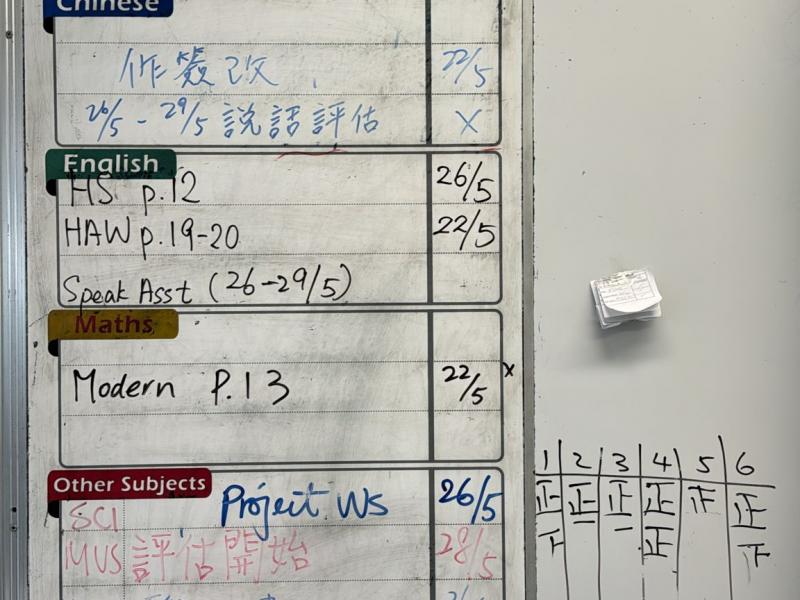 Chinese
作簽改 22/5
26/5 - 29/5 說話評估 X
English
HS p.12 26/5
HAW p.19-20 22/5
Speak Asst (26-29/5)
Maths
Modern P.13 22/5 x
Other Subjects
SCI Project WS 26/5
MUS 評估開始 28/5
1 2 3 4 5 6
正 正 正 正 正 正